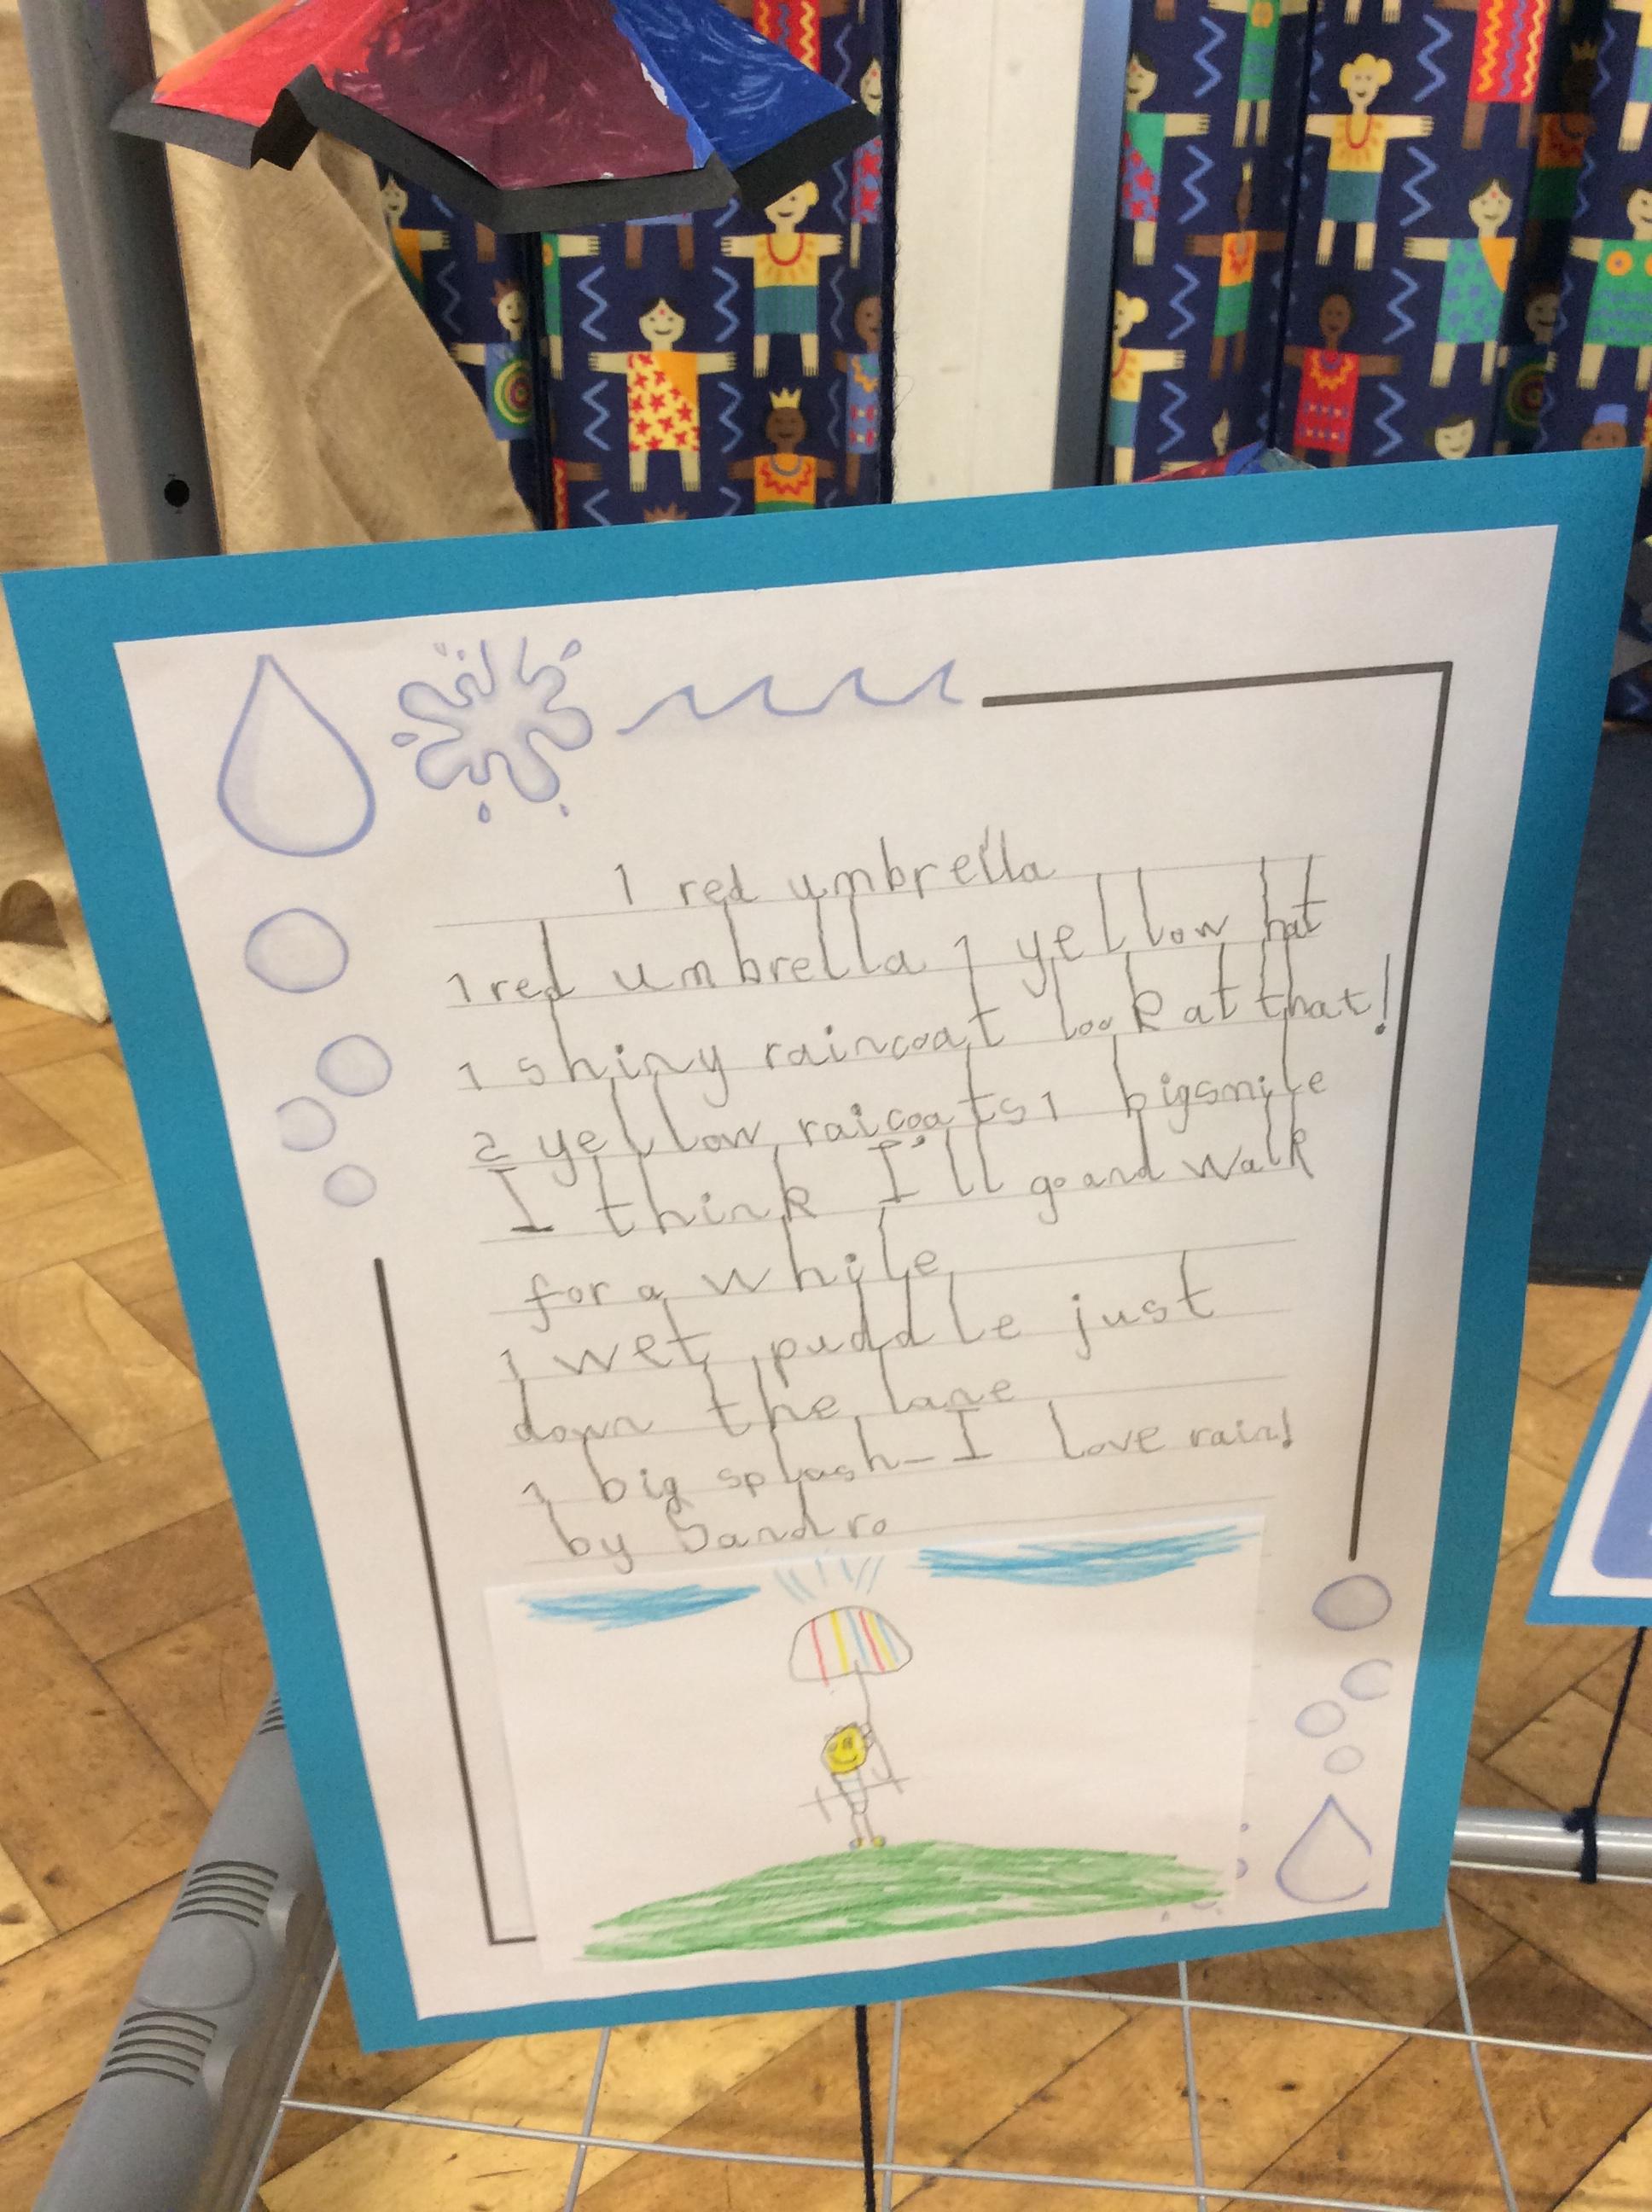 1 red umbrella
1 red umbrella 1 yellow hat
1 shiny raincoat look at that!
2 yellow raicoats 1 big smile
I think I'll go and walk
for a while
1 wet puddle just
down the lane
1 big splash - I love rain!
by Sandro